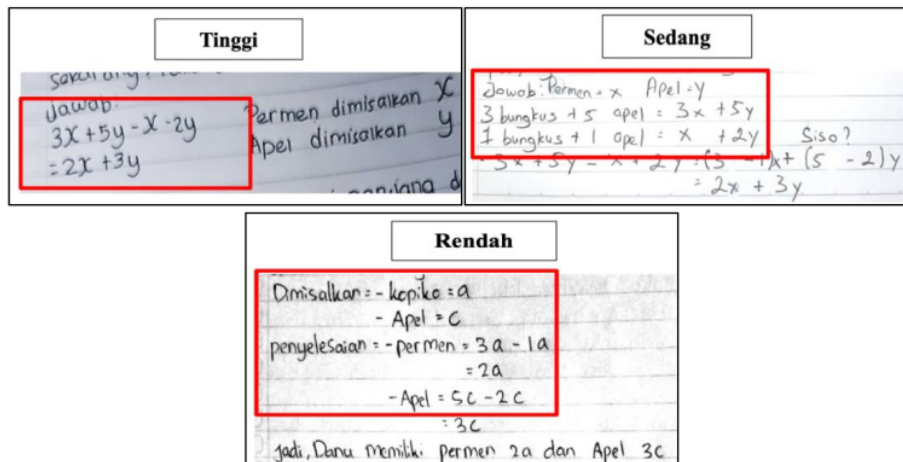 Tinggi
Jawab:
3x + 5y - x - 2y
= 2x + 3y
Permen dimisalkan x
Apel dimisalkan y
Sedang
Jawab: Permen = x Apel = y
3 bungkus + 5 apel = 3x + 5y
1 bungkus + 1 apel = x + 2y Siso?
3x + 5y - x + 2y = (3 - 1)x + (5 - 2)y
= 2x + 3y
Rendah
Dimisalkan = - kopiko = a
- Apel = c
penyelesaian = - permen = 3a - 1a
= 2a
- Apel = 5c - 2c
= 3c
Jadi, Danu memiliki permen 2a dan Apel 3c